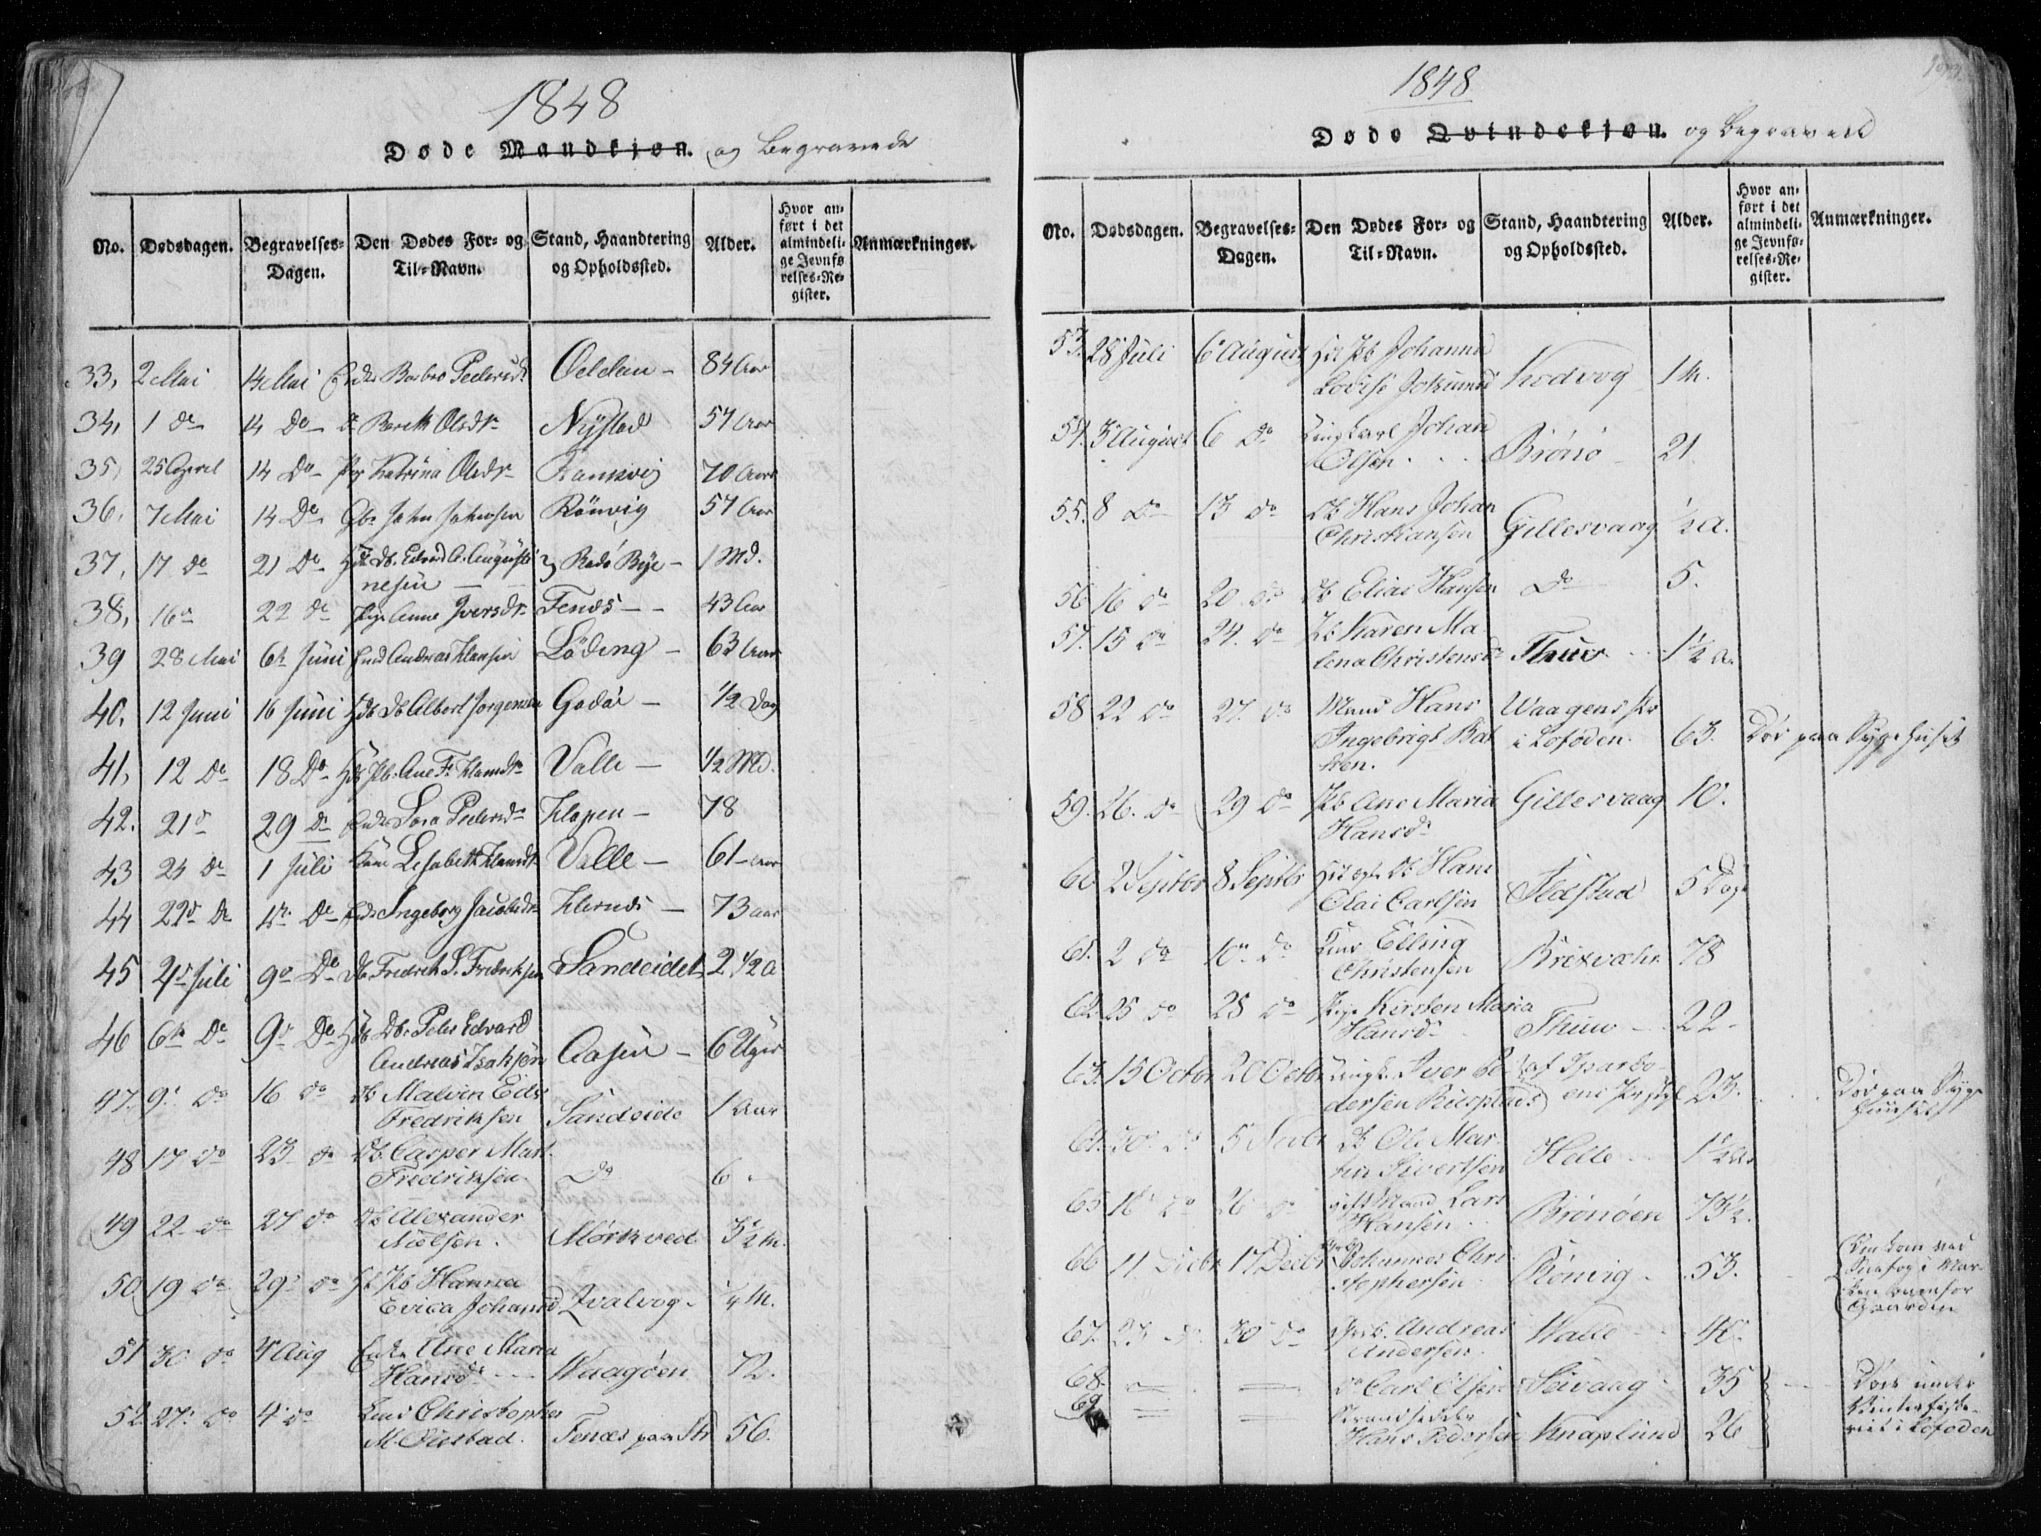 1848
Døde Mandkjøn. og Begravede
No. Dødsdagen. Begravelses-Dagen. Den Dødes For- og Til-Navn. Stand, Haandtering og Opholdssted. Alder. Hvor anført i det almindelige Jevnførelses-Register. Anmærkninger.
33, 2 Mai 14 Mai Enke Barbro Pedersd. Oeldeu - 84 Aar
34, 1 do 14 Do do Bereth Olsdr Nystad 57 Aar
35, 25 April 14 Do Pig Katrina Olsdr 70 Aar
36, 7 Mai 14 Do John Johnsen Rönvig 57 Aar
37, 17 do 21 Do Db. Edvard A. Augusti Bodö Bye - 1 Md.
nesen
38, 16 22 do Pige Anne Iversdr Fenes - 43 Aar
39 28 Mai 6te Juni Andreas Hansen Löding - 63 Aar
40, 12 Juni 16 Juni Db Albert Jørgensen Godöe - 1/2 Dag
41, 12 Do 18 Do Pb. Ane F. Hansdr Valle - 1/2 Md.
42. 21 29 Do Enke Lora Pedersdr Klopen - 78
43 24 Do 1 Juli Kone Lisabeth Hansdr Valle - 61 Aar
44 22 Do Do Enke Ingeborg Jacobsdr - 73 aar
45 2 Juli 9 Do Db Fredrik S. Fredriksen Sandeidet 2 1/2 a
46 6te Do 9 Do Db. Peder Edvard
Andreas Isaksen Aasen - 6 Uger
47. 9 do 16 do Db Malvin Eds.
Fredriksen Sandeide 1 Aar
48 17 do 23 do Db. Casper Mart.
Fredriksen. do 6
49 22 do 27 do Db Alexander
Nielsen. Mørkved 3 1/2 M.
50 19 do 29 do Pb Hanna
Evica Johansd Qvalvog. 1/4 M.
51 30 do 4 Aug Enke Ane Maria
Hansdr Waagöen 72.
52 27 do 4 do Christopher
M. Oiestad. Fenæs paa Str 56.
1848
Døde Qvindekjøn. og Begravede
No. Dødsdagen. Begravelses-Dagen. Den Dødes For- og Til-Navn. Stand, Haandtering og Opholdssted. Alder. Hvor anført i det almindelige Jevnførelses-Register. Anmærkninger.
53. 28 Juli 6 August Pb Johanna
Lovise Jokumsd Hodvog 1 M.
54. 3 August 6 do Ungkarl Johan
Olsen Brönö 21.
55. 8 do 13 do Db Hans Johan
Christiansen Gillesvaag 1/2 a.
56 16 do 20 do Db Elias Hansen do 5.
57. 15 do 24 do Pb Karen Ma
lena Christensdr Thuv 1 1/2 a.
58 22 do 27 do Mand Hans Waagens Pr
Ingebrigt i Lofoden. 63. Död paa Sygehuset
59. 26. do 29 do Pb Ane Maria Gillesvaag 10.
Hansdr
60 2 Septbr 8 Septbr Db Hans
Olai Carlsen Ildstad 5 Dage
61. 2 do 10 do Elling
Christensen Brixvær 78
62. 25 do 28 do Pige Kirsten Maria
Hansdr Thuv 22
63. 15 Octbr 20 Octbr Ungk. Iver Pe af Sparbo
dersen ens Prstgl 23. Död paa Syge
huuset
64. 30 do 5 Novbr Db Ole Mar
tin Sivertsen Helle 1 1/2 a.
65 16 do 26 do gift Mand Lars
Hansen Brönöen 73 1/2.
66 11 Decbr 17 Decbr Johannes Chri
stophersen Rönvig 53. Omkom ved
Sneefog i Mar
ken ovenfor
Gaarden
67. 23 do 30 do Andreas
Andersen. Walle 40.
68. do Carl Olsen Seivaag 35 Döde under
69. Strandsidder
Hans Pedersen Knaplund 26 Vinterfiske
riet i Lofoden